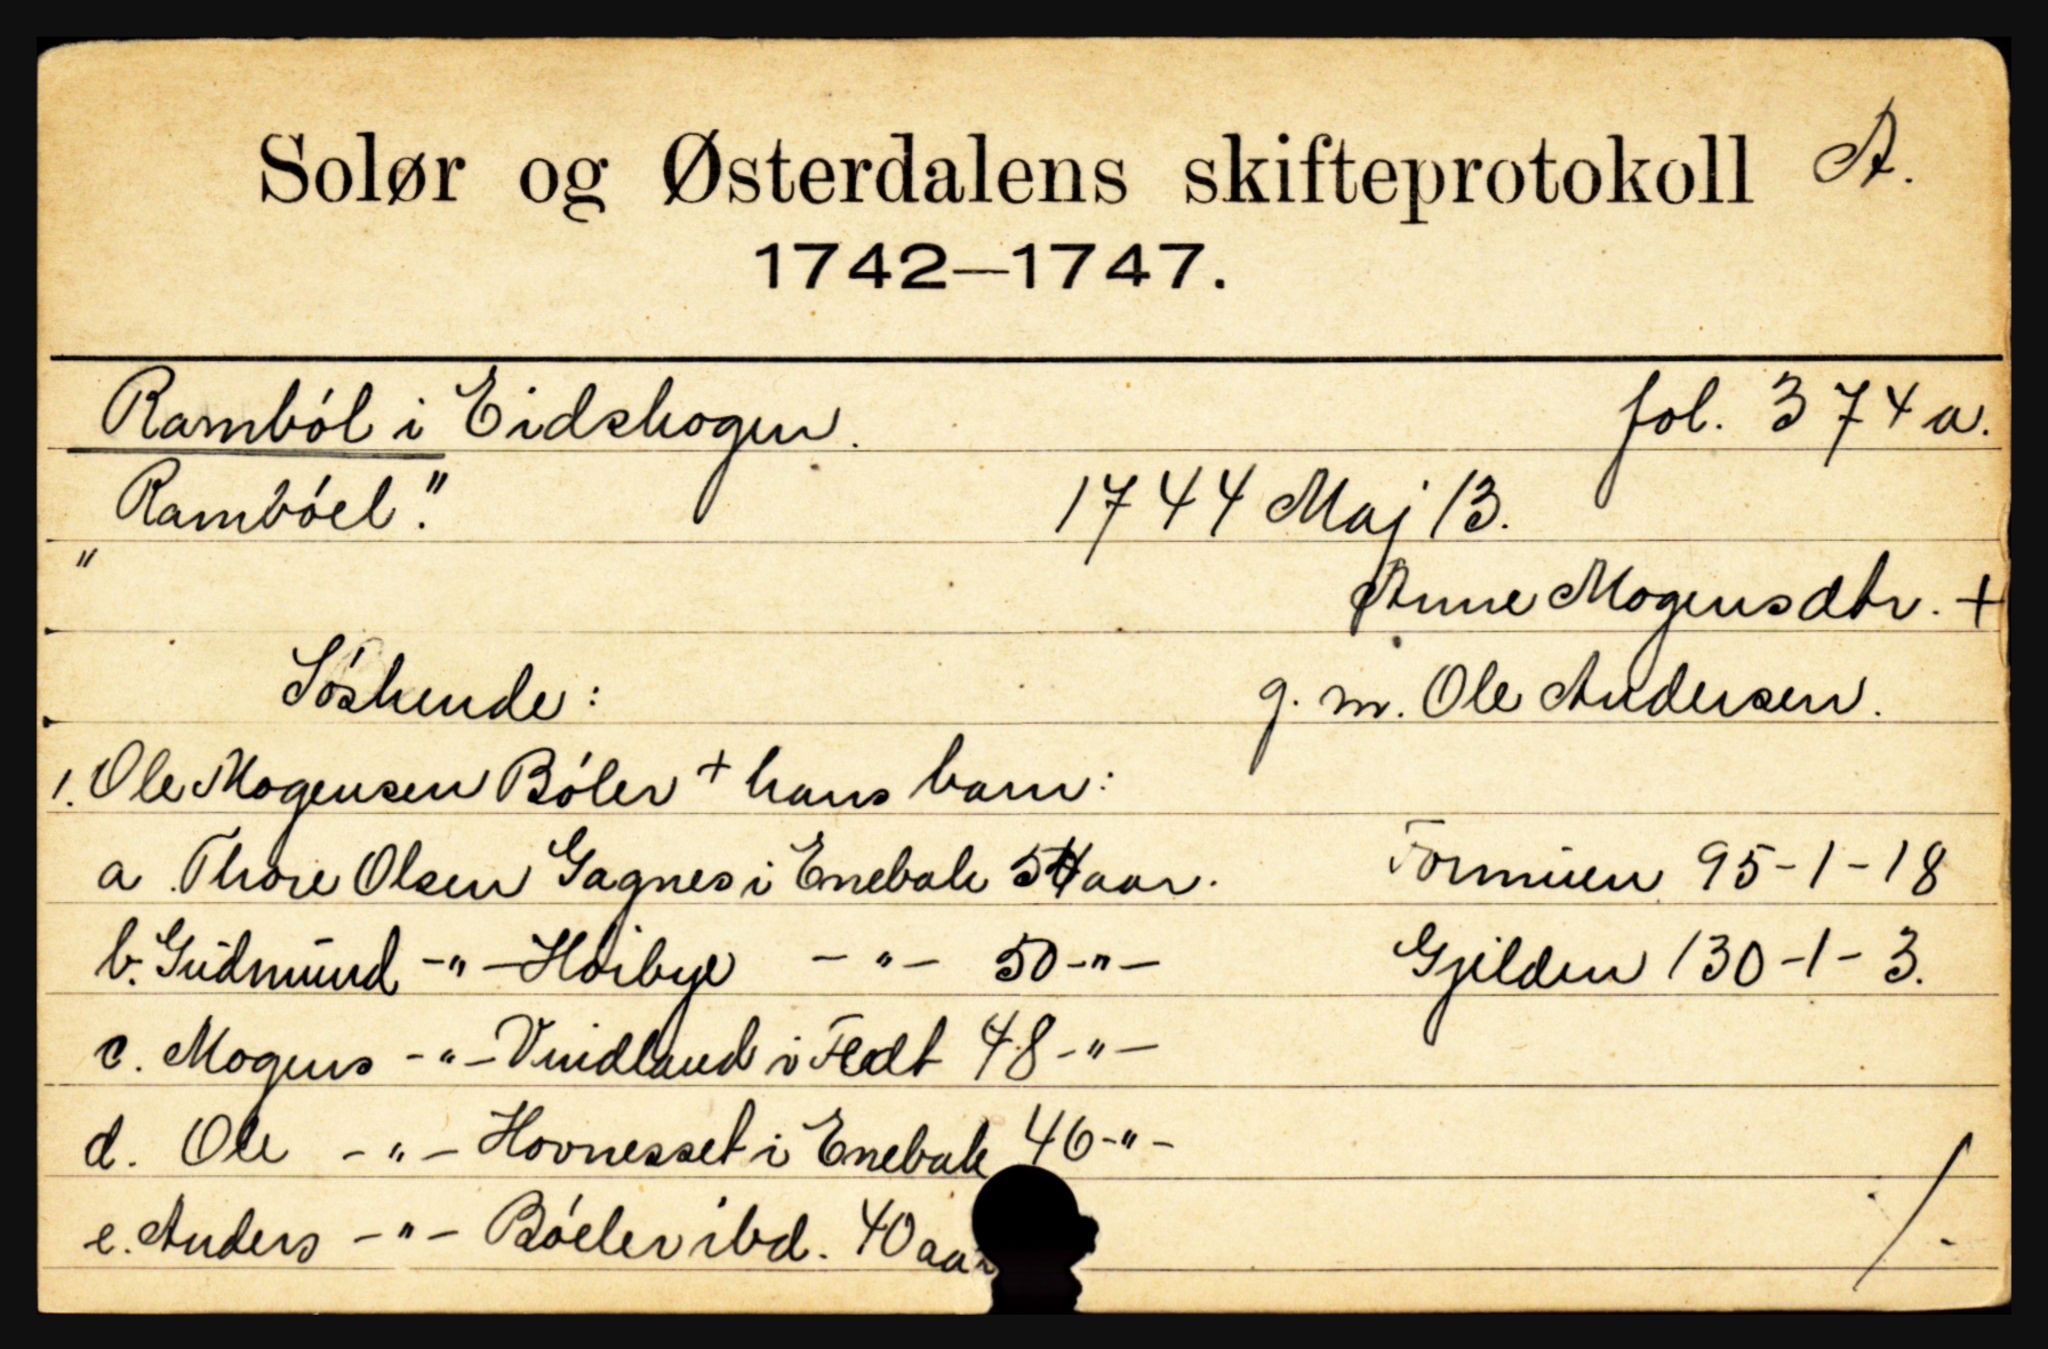 Solør og Østerdalens skifteprotokoll A.
1742—1747.
Ramból i Eidskogen. fol. 374 a.
"Rambóel". 1744 Maj 13.
Anne Mogensdtr. +
Sóskende: g. m. Ole Andersen.
1. Ole Mogensen Bóler + hans barn:
a. Thore Olsen Gagnes i Enebak 54 aar. Formuen 95-1-18
b. Gudmund -"- Hóibye -"- 50-"- Gjelden 130-1-3.
c. Mogens -"- Vindland i Fedt 48-"-
d. Ole -"- Hovnesset i Enebak 46-"-
e. Anders -"- Bóeler ibd. 40 aar
/.